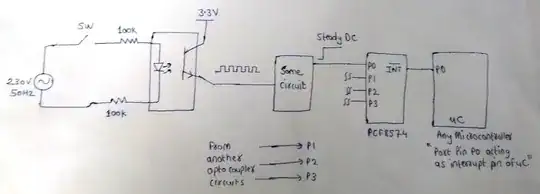 SW
100k
3.3V
Steady DC
230V
50HZ
100k
Some
circuit
P0
INT
P1
P2
P3
PCF8574
P0
uC
Any Microcontroller
"Port Pin P0 acting
as interrupt pin of uC"
From
another
optocoupler
circuits
P1
P2
P3